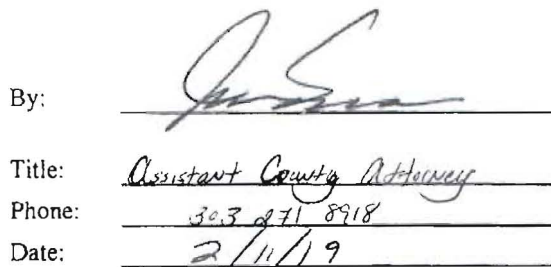 By:
Title: Assistant County Attorney
Phone: 303 271 8918
Date: 2/11/19